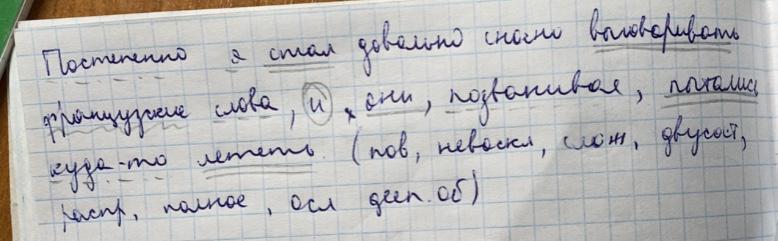 Постепенно я стал довольно сносно выговаривать
французские слова, и они, позванивая, пытались
куда-то лететь. (пов, невоскл, слож, двусост,
распр, полное, осл дееп. об)